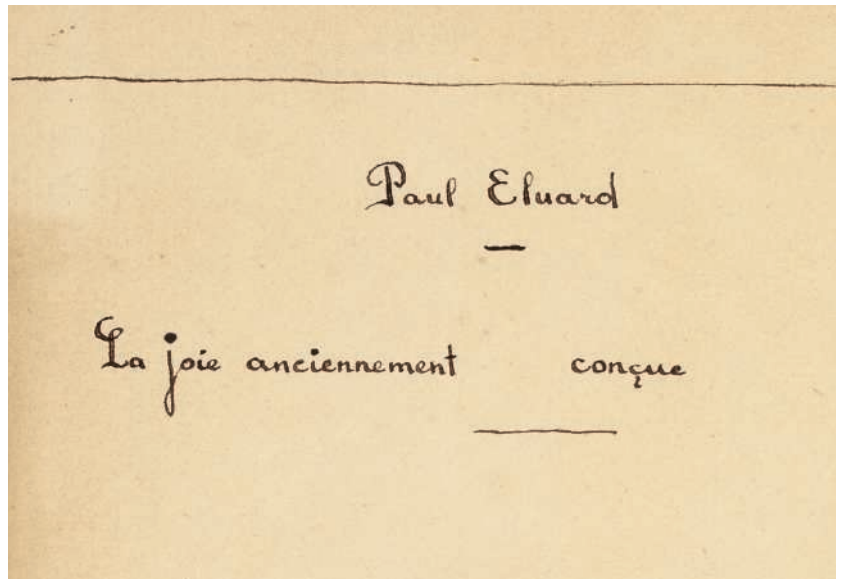 Paul Eluard
La joie anciennement conçue